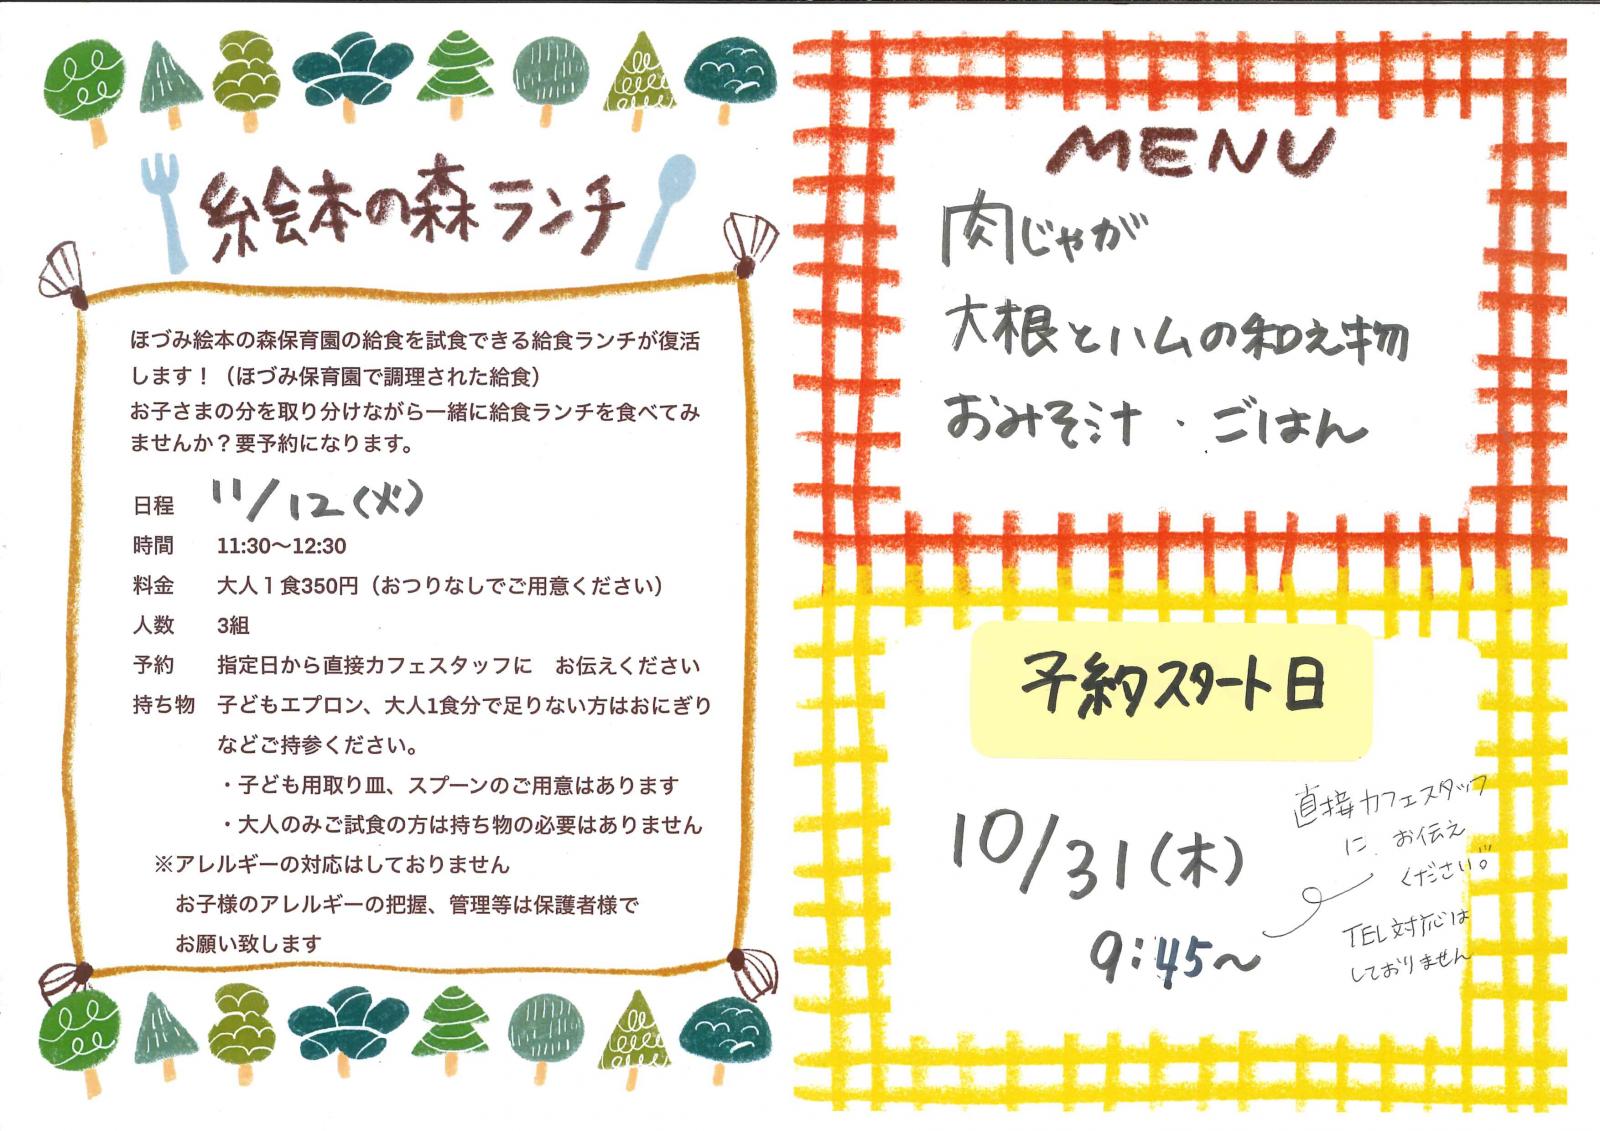 絵本の森ランチ
ほづみ絵本の森保育園の給食を試食できる給食ランチが復活
します！（ほづみ保育園で調理された給食）
お子さまの分を取り分けながら一緒に給食ランチを食べてみ
ませんか？要予約になります。
日程 11/12（火）
時間 11:30〜12:30
料金 大人１食350円（おつりなしでご用意ください）
人数 3組
予約 指定日から直接カフェスタッフに　お伝えください
持ち物 子どもエプロン、大人1食分で足りない方はおにぎり
などご持参ください。
・子ども用取り皿、スプーンのご用意はあります
・大人のみご試食の方は持ち物の必要はありません
※アレルギーの対応はしておりません
お子様のアレルギーの把握、管理等は保護者様で
お願い致します
MENU
肉じゃが
大根とハムの和え物
おみそ汁・ごはん
予約スタート日
10/31（木）
9:45〜
直接カフェスタッフ
に、お伝え
ください。
TEL対応は
しておりません